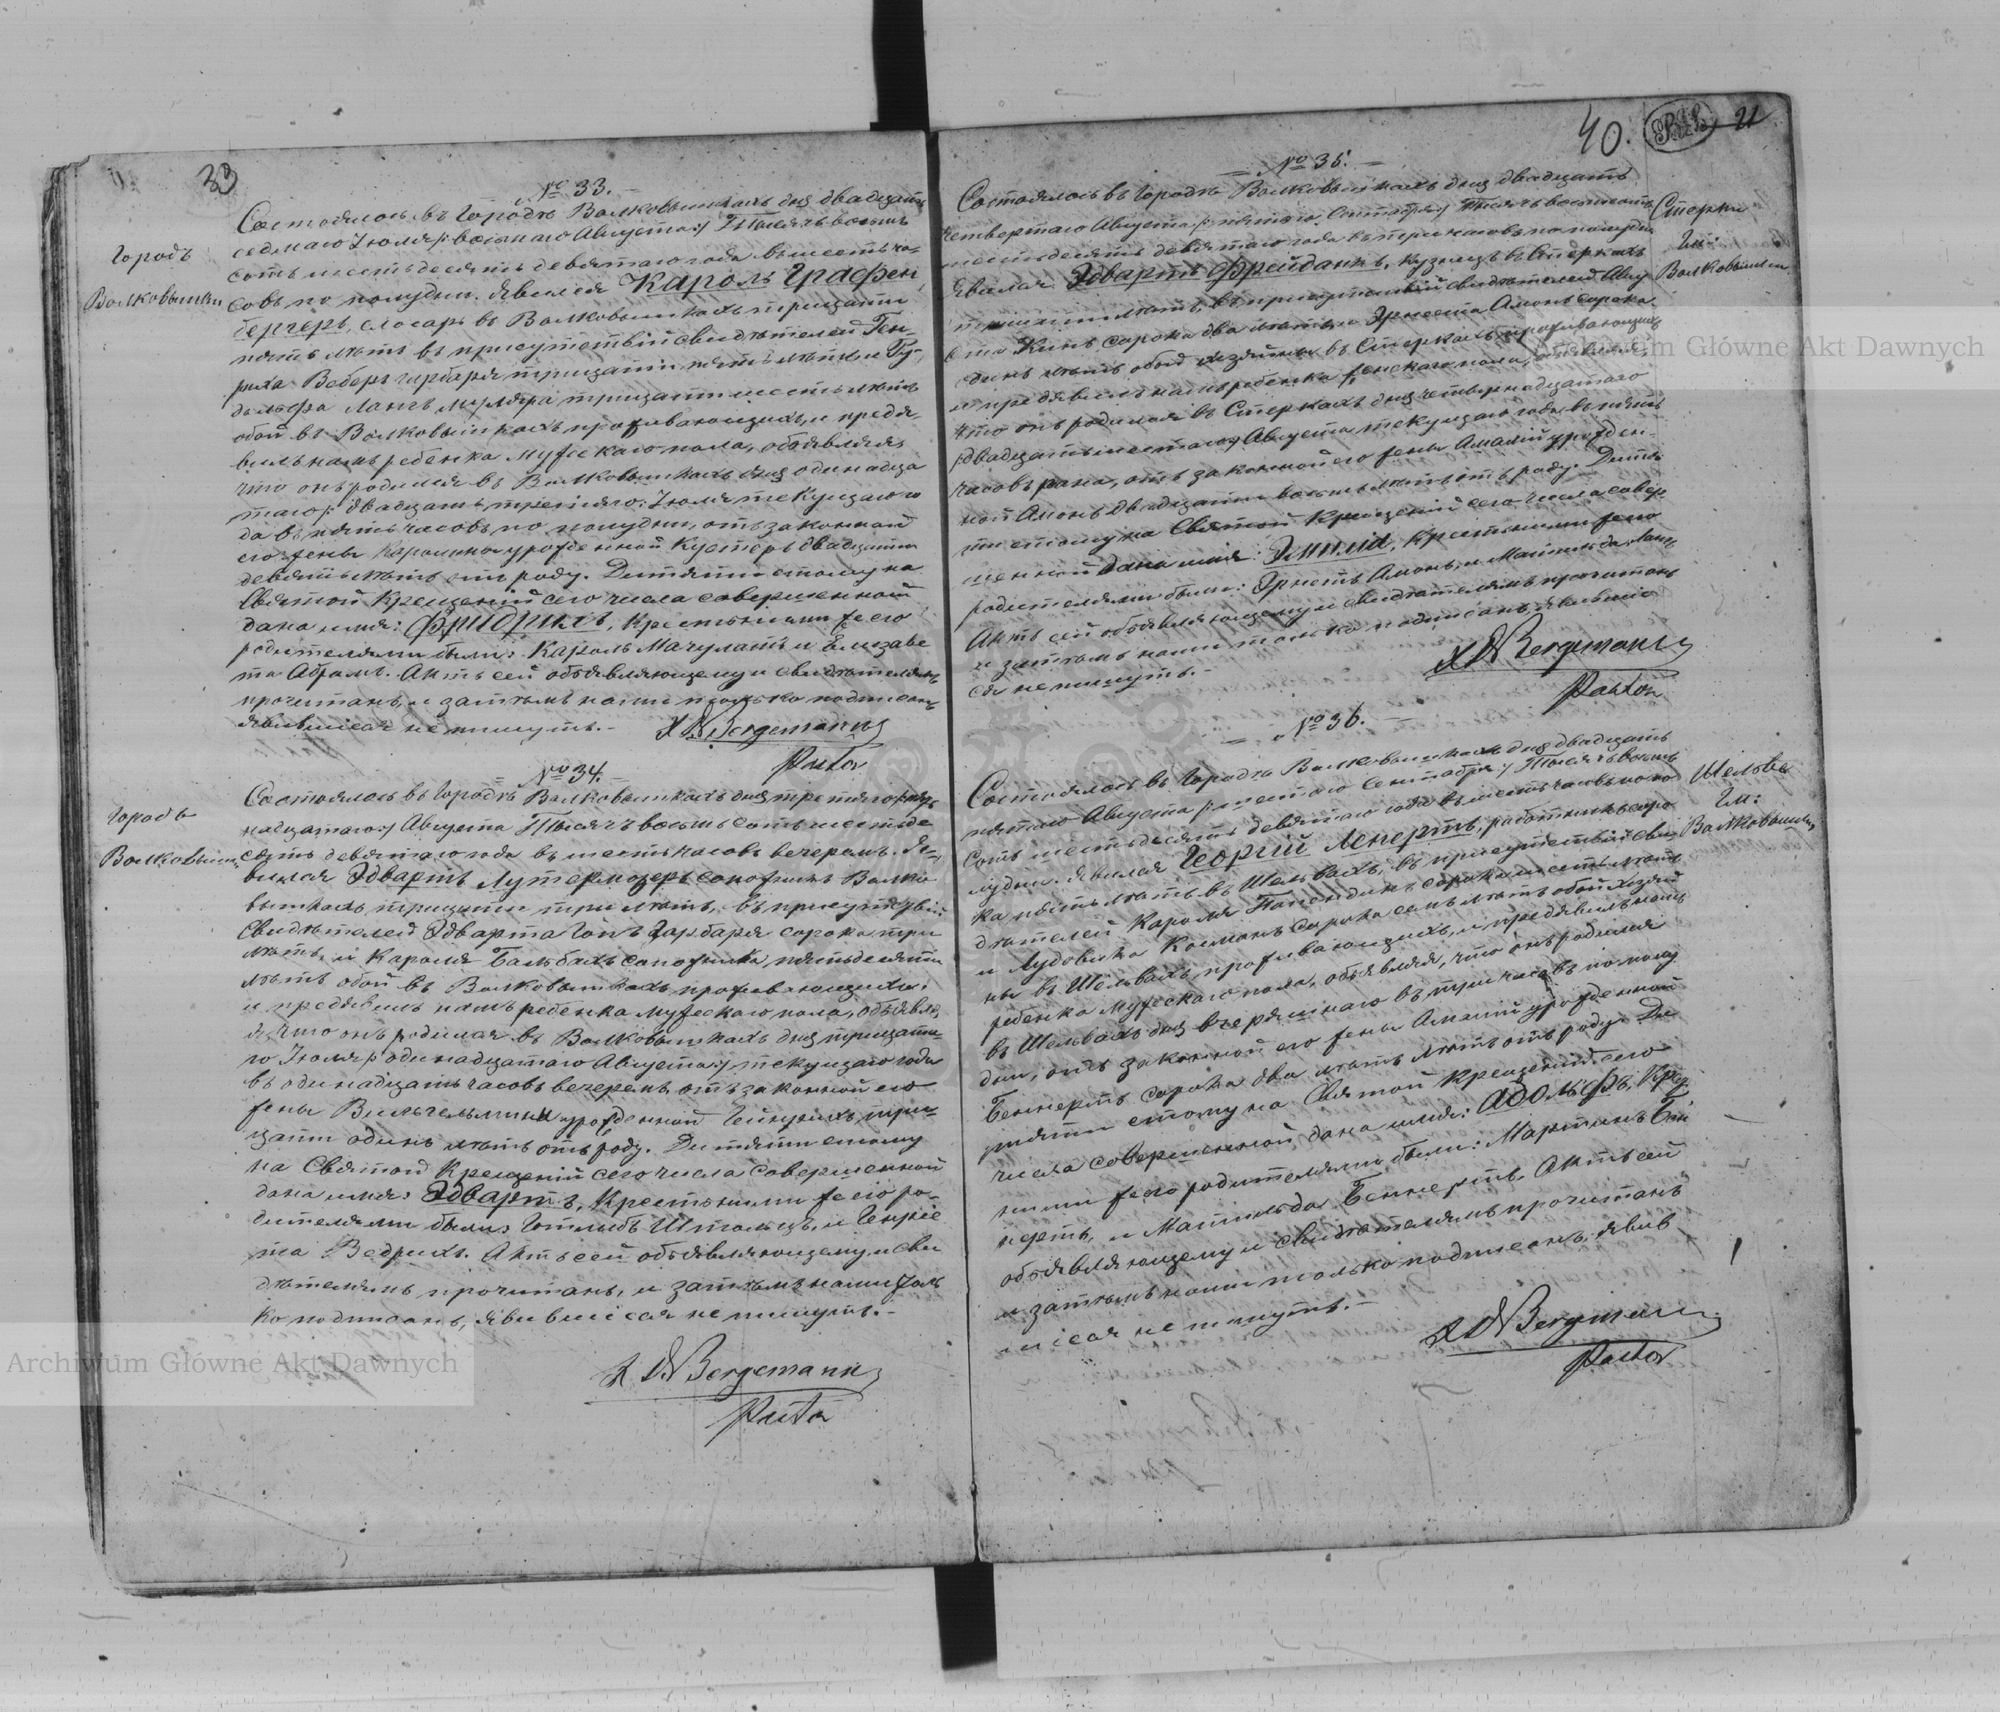 33
№ 33.
Городъ
Волковышки
Состоялось въ Городѣ Волковышкахъ дня двадцать
седьмаго Іюля /: восьмаго Августа :/ Тысяча восемь
сотъ шестьдесятъ девятаго года въ шесть ча-
совъ по полудни. Явился Кароль Графен
бергеръ, слесарь въ Волковышкахъ тридцати
пять лѣтъ въ присутствіи свидѣтелей Ген-
риха Веберъ гарбаря тридцати пять лѣтъ и Гу-
дольфа Лангъ муляра тридцати шесть лѣтъ
обой въ Волковышкахъ проживающихъ, и предъя
вилъ намъ ребенка мужескаго пола, объявляя,
что онъ родился въ Волковышкахъ дня одинадца
таго /: двадцать третьяго :/ Іюля текущаго го
да въ пять часовъ по полудни, отъ законной
его жены Каролины урожденной Кустеръ двадцати
девять лѣтъ отъ роду. Дитяти етому на
Святой Крещеній сего числа совершенной
дана имя: Фридрихъ, Крестными же его
родителями были: Кароль Мачулатъ и Елизаве
та Абрамъ. Актъ сей объявляющему и свидѣтелямъ
прочитанъ, и затѣмъ нами только подписанъ,
явившіеся не пишутъ.-
Bergemann
Pastor
№ 34.
Городъ
Волковышки
Состоялось въ Городѣ Волковышкахъ дня третяго
надцатаго :/ Августа Тысяча восемь сотъ шестьде
сятъ девятаго года въ шесть часовъ вечеромъ. Я-
вился Эдвартъ Лутермозеръ сапожникъ Волко
вышкахъ тридцати три лѣтъ, въ присутствіи
Свидѣтелей Эдварта Гопъ Гарбаря сорока три
лѣтъ, и Кароля Бальбахъ сапожника, пятьдесяти
лѣтъ обой въ Волковышкахъ проживающихъ,
и предъявилъ намъ ребенка мужескаго пола, объявля
я, что онъ родился въ Волковышкахъ дня тридцата-
го Іюля /: одинадцатаго Августа :/ текущаго года
въ одинадцать часовъ вечеромъ, отъ законной его
жены Вильгельмины урожденной Гейнрихъ, три-
цати одинъ лѣтъ отъ роду. Дитяти етому
на Святой Крещеній сего числа совершенной
дана имя: Эдвартъ, Крестными же его ро-
дителями были: Готлибъ Штольцъ, и Генріе
та Ведрихъ. Актъ сей объявляющему, и сви
дѣтелямъ прочитанъ, и затѣмъ нами толь
ко подписанъ, явившіеся не пишутъ.-
Bergemann
Pastor
40.
21
№ 35.
Стерки
Гм:
Волковышки
Состоялось въ Городѣ Волковышкахъ дня двадцать
четвертаго Августа /: пятаго Сентября :/ Тысяча восемьсотъ
шестьдесятъ девятаго года въ три часовъ по полудни
Явился Эдвартъ Фрейданкъ, кузнецъ въ Стеркахъ
лѣтъ, въ присутствій свидѣтелей Авгу
ста Кипъ сорока два лѣтъ, и Эрнеста Амонъ сорока
одинъ лѣтъ обой хозяйны въ Стеркахъ проживающихъ
и предъявилъ намъ ребенка женскаго пола, объявляя,
что онъ родился въ Стеркахъ дня четырнадцатаго
/: двадцать шестаго :/ Августа текущаго года въ пять
часовъ рана, отъ законной его жены Амаліи урожден-
ной Амонъ двадцати восемь лѣтъ отъ роду. Дитя
ти етому на Святой Крещеній сего числа совер
шенной дана имя: Эмилія, Крестными же его
родителями были: Эрнстъ Амонъ, и Матильда Лангъ
Актъ сей объявляющему и свидѣтелямъ прочитанъ
и затѣмъ нами только подписанъ, явившіе
ся не пишутъ.-
Bergemann
Pastor
№ 36.
Шельвы
Гм:
Волковышки
Состоялось въ Городѣ Волковышкахъ дня двадцать
пятаго Августа /: шестаго Сентября :/ Тысяча восемь
сотъ шестьдесятъ девятаго года въ шесть часовъ по по
лудни. Явился Георгій Ленертъ, работникъ соро
ка пять лѣтъ въ Шельвахъ, въ присутствій сви
дѣтелей Кароля Папендикъ сорока шесть лѣтъ
и Лудовика Косманъ сорока семь лѣтъ обой хозяй
ны въ Шельвахъ проживающихъ, и предъявилъ намъ
ребенка мужескаго пола, объявляя, что онъ родился
въ Шельвахъ дня вчерашнаго въ три часовъ по полу
дни, отъ законной его жены Амаліи урожденной
Беннертъ сорока два лѣтъ отъ роду. Ди
тяти етому на Святой Крещеній сего
числа совершенной дана имя: Адольфъ, Крест
ными же его родителями были: Мартинъ Бен
нертъ, и Матильда Беннертъ. Актъ сей
объявляющему и свидѣтелямъ прочитанъ
и затѣмъ нами только подписанъ, явив
шіеся не пишутъ.-
Bergemann
Pastor
Archiwum Główne Akt Dawnych
Archiwum Główne Akt Dawnych